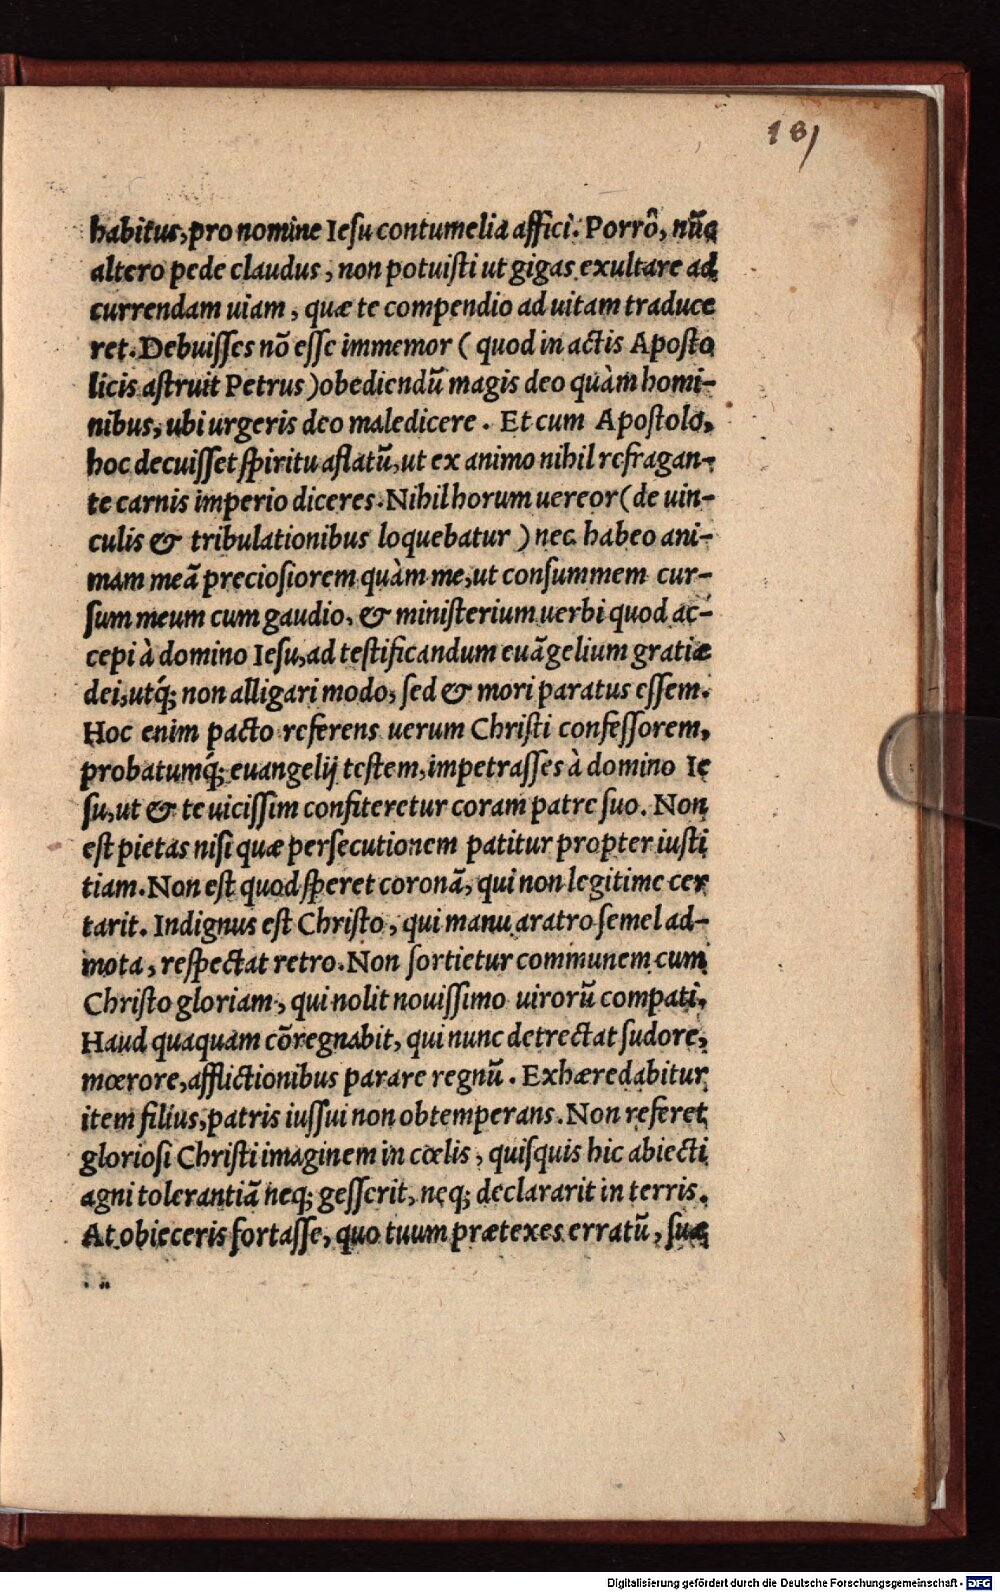 181
habitus, pro nomine Iesu contumelia affici. Porrô, nũq
altero pede claudus, non potuisti ut gigas exultare ad
currendam uiam, quæ te compendio ad uitam traduce
ret. Debuisses nõ esse immemor ( quod in actis Aposto
licis astruit Petrus ) obediendũ magis deo quàm homi-
nibus, ubi urgeris deo maledicere. Et cum Apostolo,
hoc decuisset spiritu aflatũ, ut ex animo nihil refragan-
te carnis imperio diceres. Nihil horum uereor ( de uin-
culis & tribulationibus loquebatur ) nec habeo ani-
mam meã preciosiorem quàm me, ut consummem cur-
sum meum cum gaudio, & ministerium uerbi quod ac-
cepi à domino Iesu, ad testificandum euãgelium gratiæ
dei, utq́; non alligari modo, sed & mori paratus essem.
Hoc enim pacto referens uerum Christi confessorem,
probatumq́; euangelij testem, impetrasses à domino Ie
su, ut & te uicissim confiteretur coram patre suo. Non
est pietas nisi quæ persecutionem patitur propter iusti
tiam. Non est quod speret coronã, qui non legitime cer
tarit. Indignus est Christo, qui manu aratro semel ad-
mota, respectat retro. Non sortietur communem cum
Christo gloriam, qui nolit nouissimo uirorũ compati.
Haud quaquam cõregnabit, qui nunc detrectat sudore,
mœrore, afflictionibus parare regnũ. Exhæredabitur
item filius, patris iussui non obtemperans. Non referet
gloriosi Christi imaginem in cœlis, quisquis hic abiecti
agni tolerantiã neq; gesserit, neq; declararit in terris.
At obieceris fortasse, quo tuum prætexes erratũ, suæ
Digitalisierung gefördert durch die Deutsche Forschungsgemeinschaft - DFG